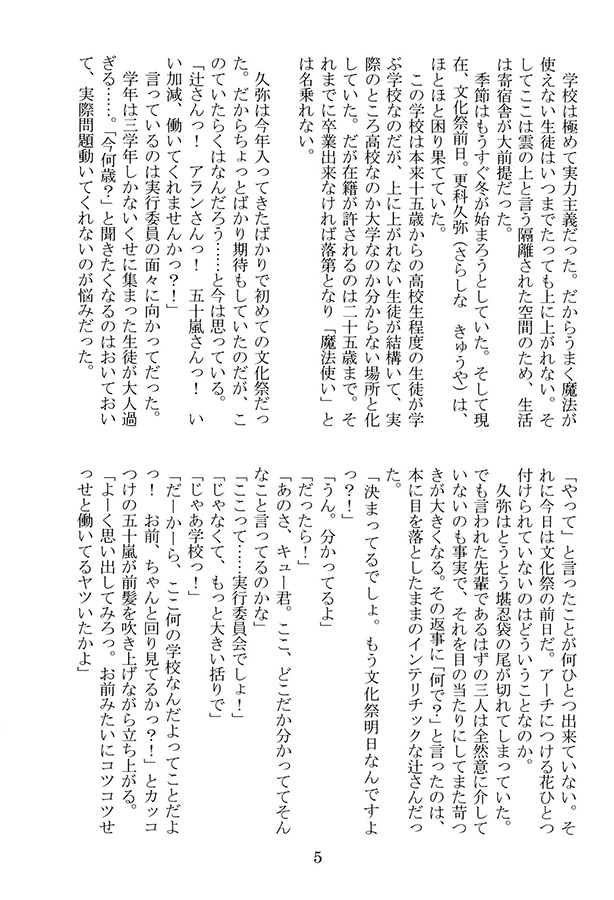 学校は極めて実力主義だった。だからうまく魔法が
使えない生徒はいつまでたっても上に上がれない。そ
してここは雲の上と言う隔離された空間のため、生活
は寄宿舎が大前提だった。
季節はもうすぐ冬が始まろうとしていた。そして現
在、文化祭前日。更科久弥(さらしな　きゅうや)は、
ほとほと困り果てていた。
この学校は本来十五歳からの高校生程度の生徒が学
ぶ学校なのだが、上に上がれない生徒が結構いて、実
際のところ高校なのか大学なのか分からない場所と化
していた。だが在籍が許されるのは二十五歳まで。そ
れまでに卒業出来なければ落第となり「魔法使い」と
は名乗れない。
久弥は今年入ってきたばかりで初めての文化祭だっ
た。だからちょっとばかり期待もしていたのだが、こ
のていたらくはなんだろう……と今は思っている。
「辻さんっ！　アランさんっ！　五十嵐さんっ！　い
い加減、働いてくれませんかっ？！」
言っているのは実行委員の面々に向かってだった。
学年は三学年しかないくせに集まった生徒が大人過
ぎる……。「今何歳？」と聞きたくなるのはおいておい
て、実際問題動いてくれないのが悩みだった。
「やって」と言ったことが何ひとつ出来ていない。そ
れに今日は文化祭の前日だ。アーチにつける花ひとつ
付けられていないのはどういうことなのか。
久弥はとうとう堪忍袋の尾が切れてしまっていた。
でも言われた先輩であるはずの三人は全然意に介して
いないのも事実で、それを目の当たりにしてまた苛つ
きが大きくなる。その返事に「何で？」と言ったのは、
本に目を落としたままのインテリチックな辻さんだっ
た。
「決まってるでしょ。もう文化祭明日なんですよ
っ？！」
「うん。分かってるよ」
「だったら！」
「あのさ、キュー君。ここ、どこだか分かっててそん
なこと言ってるのかな」
「ここって……実行委員会でしょ！」
「じゃなくて、もっと大きい括りで」
「じゃあ学校っ！」
「だーかーら、ここ何の学校なんだよってことだよ
っ！　お前、ちゃんと回り見てるかっ？！」とカッコ
つけの五十嵐が前髪を吹き上げながら立ち上がる。
「よーく思い出してみろっ。お前みたいにコツコツせ
っせと働いてるヤツいたかよ」
5